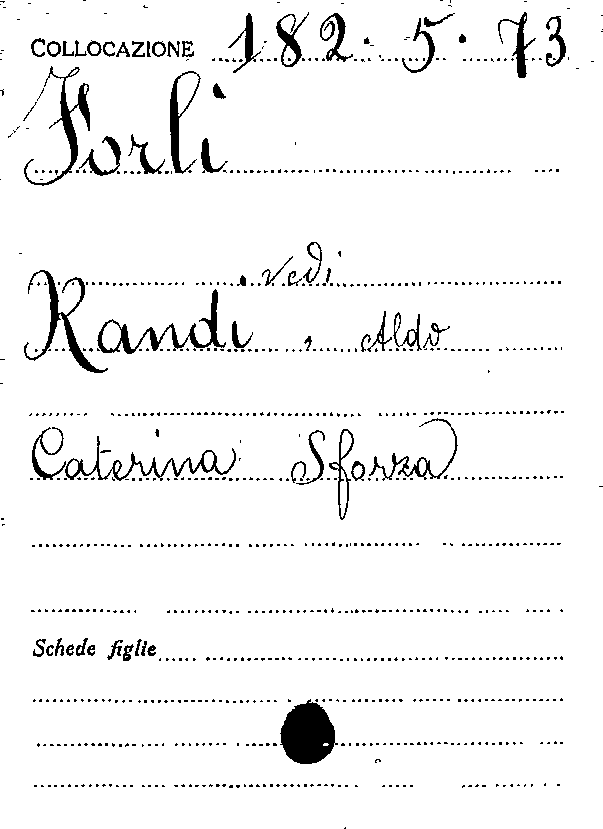 COLLOCAZIONE 182. 5. 73
Forlì
vedi
Randi, Aldo
Caterina Sforza
Schede figlie